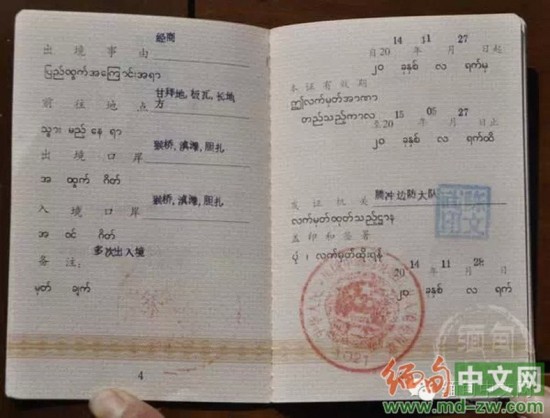 经商
出境事由
ပြည်ထွက်အကြောင်းအရာ
甘拜地,板瓦,长地
前往地点 方
သွား မည့် နေ ရာ
猴桥,滇滩,胆扎
出境口岸
အ ထွက် ဂိတ်
猴桥,滇滩,胆扎
入境口岸
အ ဝင် ဂိတ်
多次出入境
备注:
မှတ် ချက်
4
14 11 27
自20 年 月 日起
၂၀ ခုနှစ် လ ရက်မှ
本证有效期
ဤလက်မှတ်အာဏာ
တည်သည့်ကာလ
15 05 27
至20 年 月 日止
၂၀ ခုနှစ် လ ရက်ထိ
发证机关 腾冲边防大队
လက်မှတ်ထုတ်သည့်ဌာန
盖印和签署
ပုံ ၊ လက်မှတ်ထိုးရန်
14 11 28
20 年 月 日
၂၀ ခုနှစ် လ ရက်
缅甸中文网
www.md-zw.com